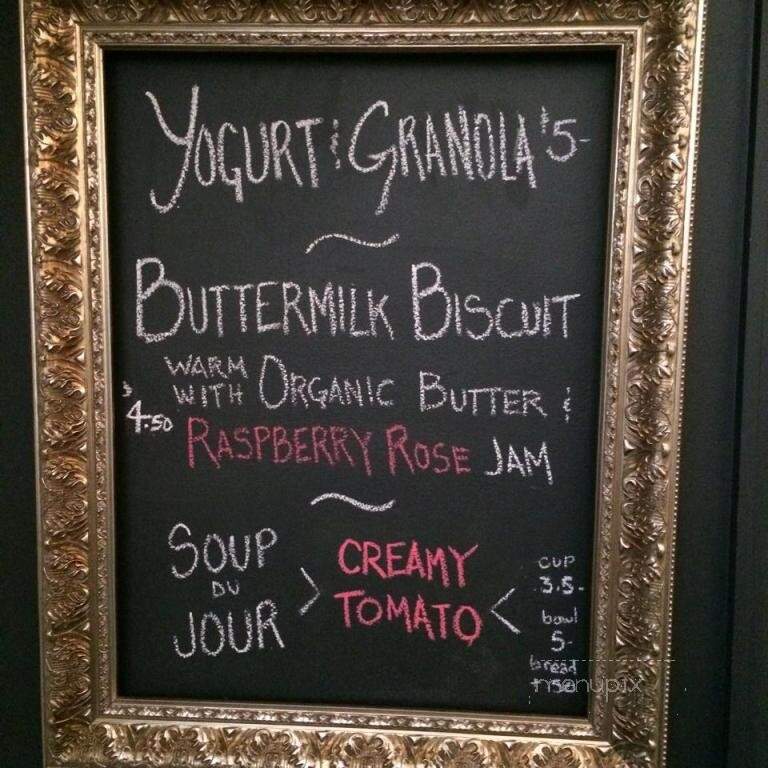 YOGURT & GRANOLA $5-
~
BUTTERMILK BISCUIT
WARM
WITH ORGANIC BUTTER &
$4.50
RASPBERRY ROSE JAM
~
SOUP
DU
JOUR
>
CREAMY
TOMATO
<
CUP
3.5-
bowl
5-
bread
menupix